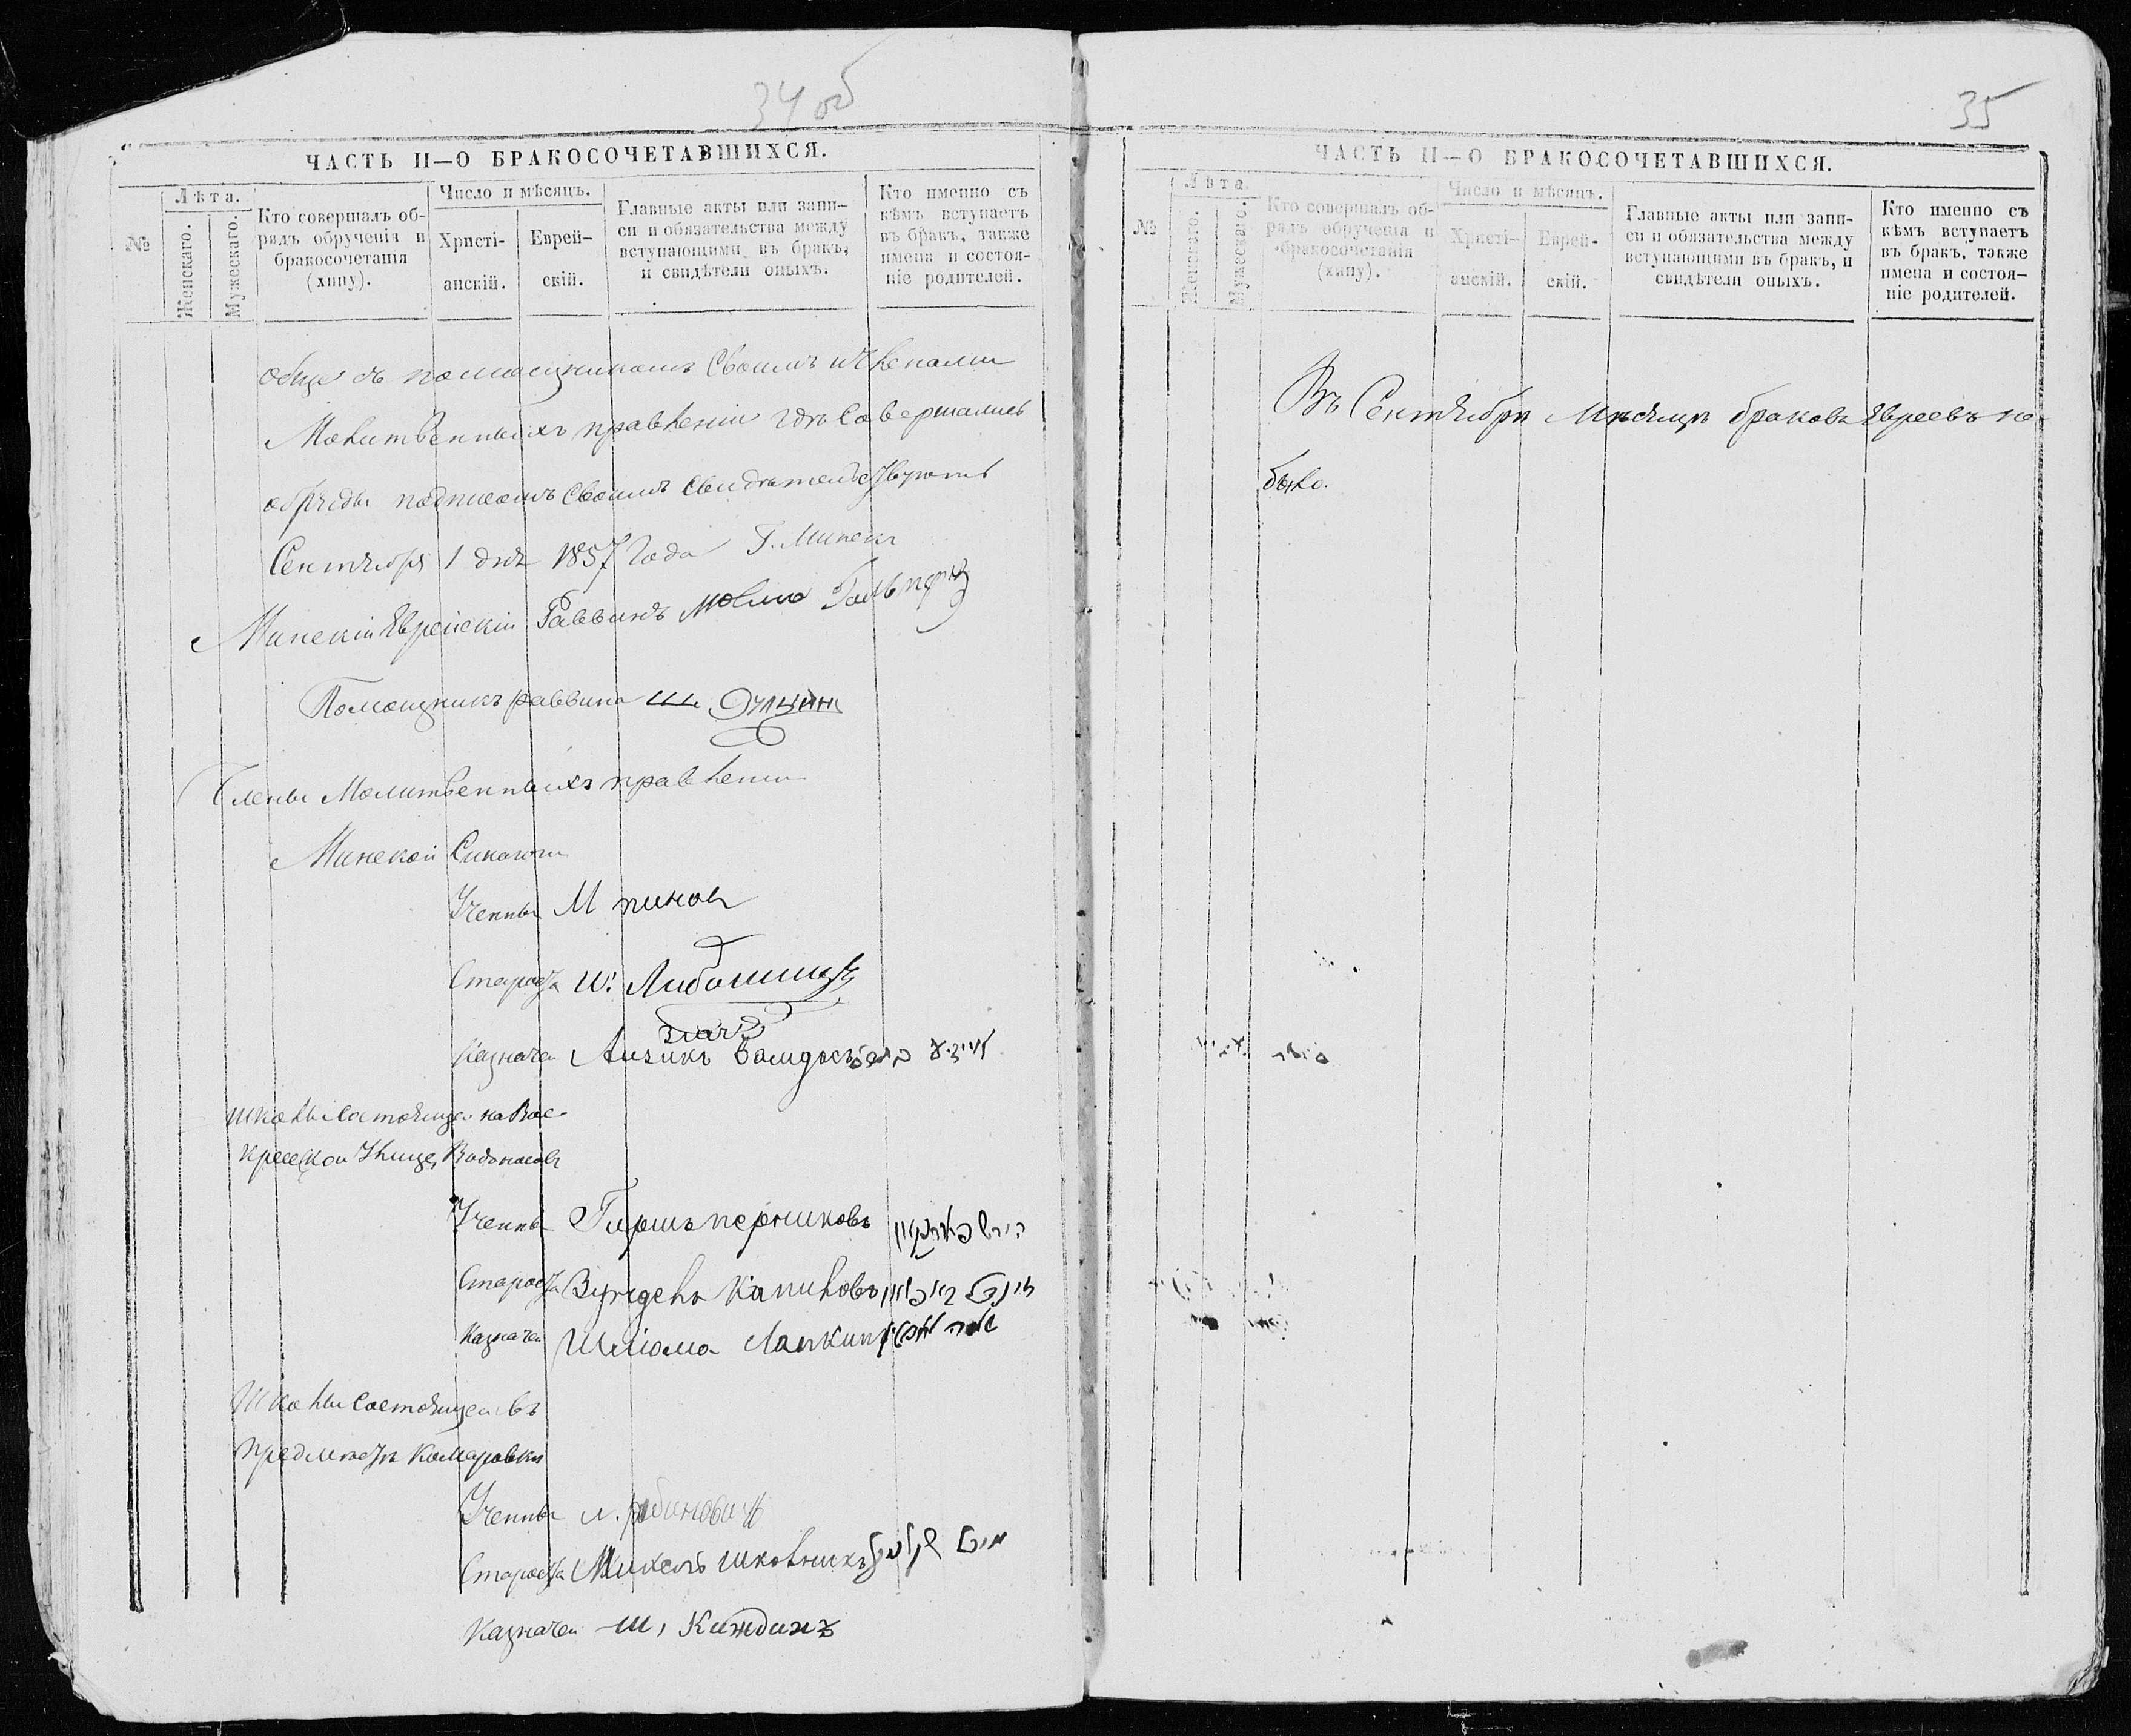 34 об
ЧАСТЬ II—О БРАКОСОЧЕТАВШИХСЯ.
№
Лѣта.
Женскаго.
Мужескаго.
Кто совершалъ об-
рядъ обрученія и
бракосочетанія
(хипу).
Число и мѣсяцъ.
Христі-
анскій.
Еврей-
скій.
Главные акты или запи-
си и обязательства между
вступающими въ бракъ,
и свидѣтели оныхъ.
Кто именно съ
кѣмъ вступаетъ
въ бракъ, также
имена и состоя-
ніе родителей.
обще съ помощникомъ своимъ и членами
Молитвенныхъ правленій гдѣ совершались
обряды подписомъ своимъ свидѣтельствуютъ
Сентября 1 дня 1857 года Г. Минск
Минскій Еврейскій Раввинъ
Помощникъ раввина Ш.
Члены Молитвенныхъ правленій
Минской Синагоги
Ученый М пинов
Староста Ш. Либошицъ
Казначей Аизикъ
Школы состоящей на Вос-
кресской улице, Водоносовъ
Ученый Гиршъ перниковъ
Староста Зунделъ Капиловъ
Казначей Шліома Лапкин
Школы состоящей въ
предместьи Комаровки
Ученый Л. рабиновичъ
Староста Михель школникъ
Казначей Ш. Кождинъ
35
ЧАСТЬ II—О БРАКОСОЧЕТАВШИХСЯ.
№
Лѣта.
Женскаго.
Мужескаго.
Кто совершалъ об-
рядъ обрученія и
бракосочетанія
(хипу).
Число и мѣсяцъ.
Христі-
анскій.
Еврей-
скій.
Главные акты или запи-
си и обязательства между
вступающими въ бракъ, и
свидѣтели оныхъ.
Кто именно съ
кѣмъ вступаетъ
въ бракъ, также
имена и состоя-
ніе родителей.
Въ Сентябрѣ Мѣсяцѣ браковъ Евреевъ не
было.